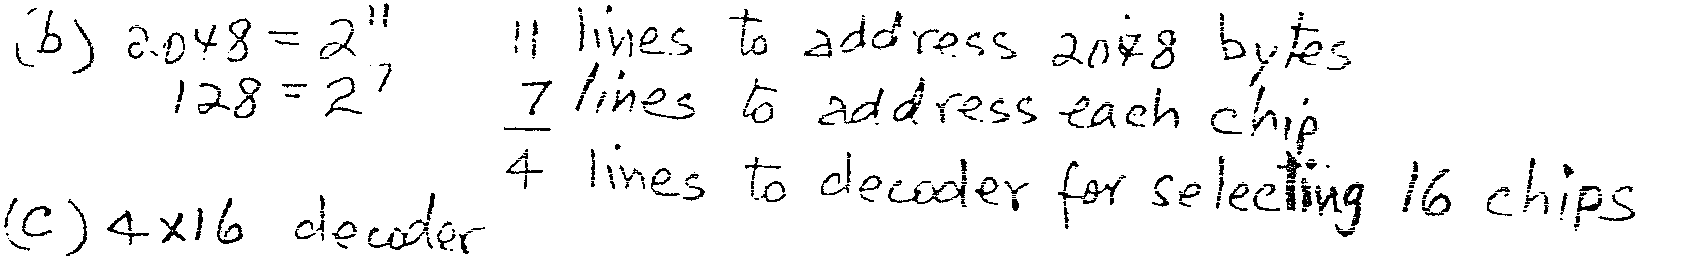 (b) 2048 = 2^11 11 lines to address 2048 bytes
128 = 2^7 7 lines to address each chip
4 lines to decoder for selecting 16 chips
(c) 4x16 decoder